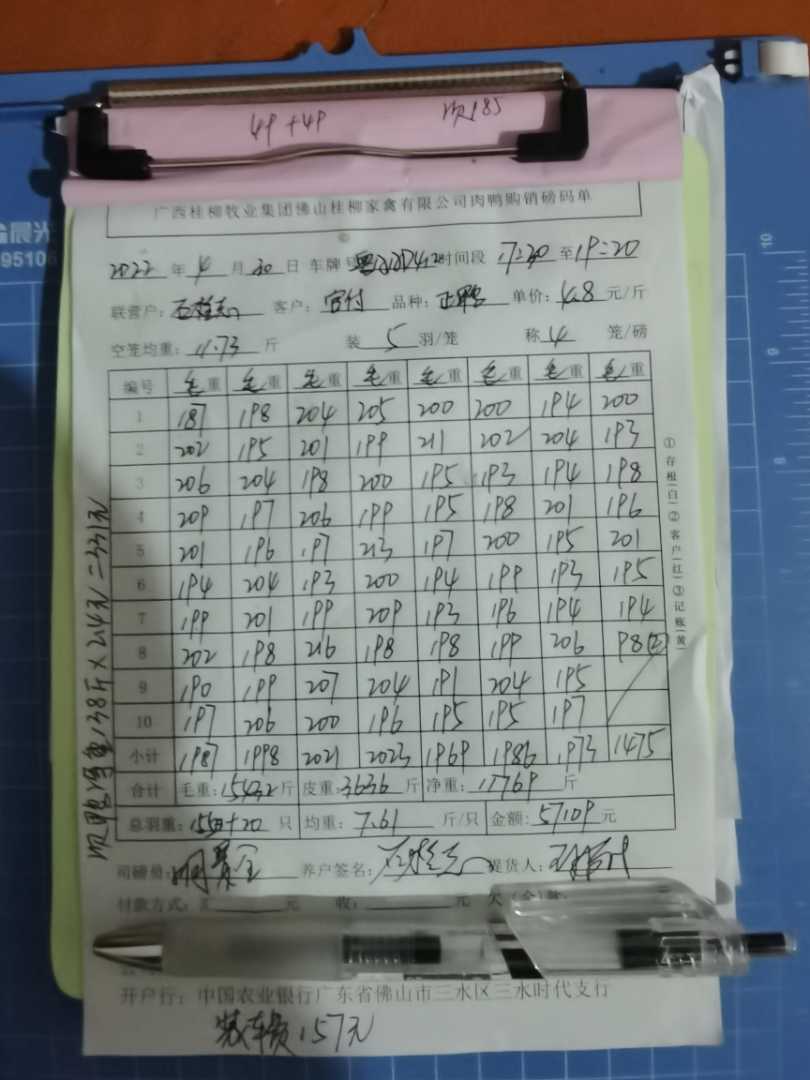 4P+4P 次185
广西桂柳牧业集团佛山桂柳家禽有限公司肉鸭购销磅码单
晨光
95106
2022 年 4 月 30 日 车牌号 时间段 17:20 至 19:20
联营户: 客户: 品种: 正鸭 单价: 4.8 元/斤
空笼均重: 11.73 斤 装 5 羽/笼 称 4 笼/磅
编号 毛重 毛重 毛重 毛重 毛重 毛重 毛重 毛重
1 187 198 204 205 200 200 194 200
2 202 195 201 199 211 202 204 193
3 206 204 198 200 195 193 194 198
4 209 197 206 199 195 198 201 196
5 201 196 197 213 197 200 195 201
6 194 204 193 200 194 199 193 195
7 199 201 199 209 193 196 194 194
8 202 198 216 198 198 199 206 98(2)
9 190 199 207 204 191 204 195
10 197 206 200 196 195 195 197
小计 1987 1998 2021 2023 1969 1986 1973 1475
合计 毛重: 15432 斤 皮重: 3636 斤 净重: 11769 斤
总羽重: 1550+20 只 均重: 7.61 斤/只 金额: 57109 元
司磅员: 养户签名: 提货人:
付款方式: 元 收: 元 欠
开户行: 中国农业银行广东省佛山市三水区三水时代支行
装车费157元
次鸭净重138斤×2.4元=331元
①存根(白)②客户(红)③记账(黄)